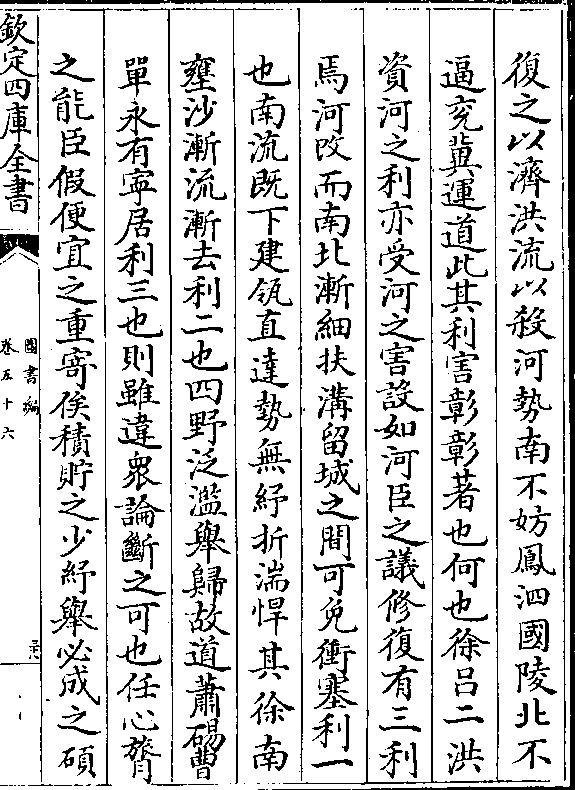 復之以濟洪流以殺河勢南不妨鳳泗國陵北不
逼兖冀運道此其利害彰彰著也何也徐吕二洪
資河之利亦受河之害設如河臣之議修復有三利
焉河改而南北漸細扶溝留城之間可免衝塞利一
也南流既下建瓴直達勢無紆折湍悍其徐南
壅沙漸流漸去利二也四野泛濫舉歸故道蕭碭曹
單永有寧居利三也則雖違衆論斷之可也任心膂
之能臣假便宜之重寄俟積貯之少紓舉必成之碩
欽定四庫全書
圖書編
卷五十六